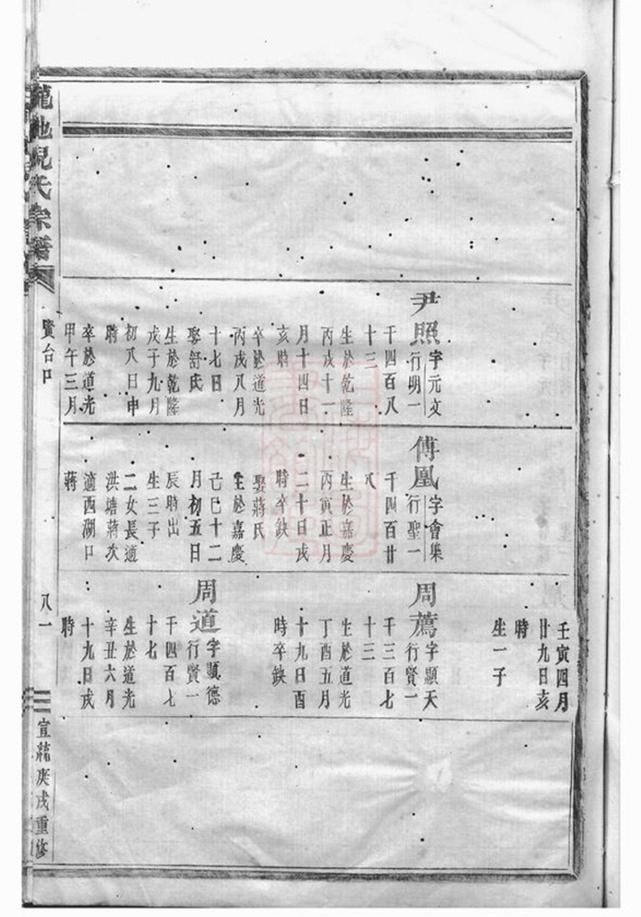 尹照
字元文
行明一
千四百八
十三
生於乾隆
丙戌十一
月十四日
亥時
卒於道光
丙戌八月
十七日
娶舒氏
生於乾隆
戊子九月
初八日申
時
卒於道光
甲午三月
傅凰
字會集
行聖一
千四百廿
八
生於嘉慶
丙寅正月
二十日戌
時卒缺
娶蔣氏
生於嘉慶
己巳十二
月初五日
辰時出
生三子
二女長適
洪塘蔣次
適西湖口
蔣
壬寅四月
廿九日亥
時
生一子
周薦
字顯天
行賢一
千三百七
十三
生於道光
丁酉五月
十九日酉
時卒缺
周道
字顯德
行賢一
千四百七
十七
生於道光
辛丑六月
十九日戌
時
氏宗譜
賢台口
八一
宣蘢庚戌重修